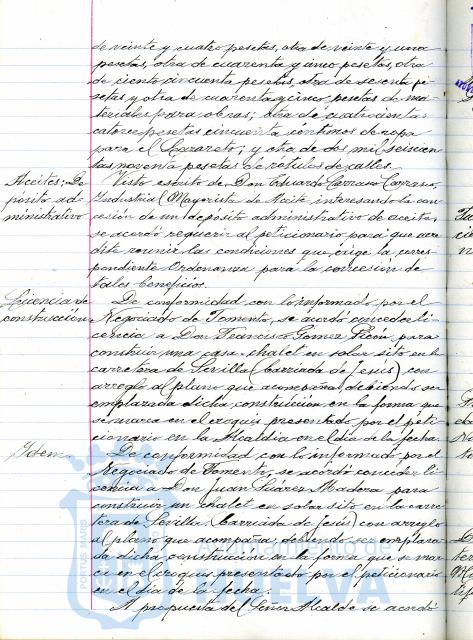 de veinte y cuatro pesetas, otra de veinte y una
pesetas, otra de cuarenta y cinco pesetas, otra
de ciento cincuenta pesetas, otra de sesenta pe
setas y otra de cuarenta y cinco pesetas de ma
teriales para obras; otra de cuatrocientas
catorce pesetas cincuenta centimos de ropa
para el Lazareto; y otra de dos mil seiscien
tas noventa pesetas de rótulos de calles.
Aceites; De
posito ad
ministrativo
Visto escrito de Don Eduardo Carrasco Carrasco,
Industrial Mayorista de Aceite interesando la con
cesión de un depósito administrativo de aceites,
se acordó requerir al peticionario para que acre
dite reunir las condiciones que exige la corres
pondiente Ordenanza para la concesión de
tales beneficios.
Licencias de
construcción
De conformidad con lo informado por el
Negociado de Fomento, se acordó conceder li
cencia a Don Francisco Gómez Picón, para
construir una casa-chalet en solar sito en la
carretera de Sevilla (barriada de Jesús) con
arreglo al plano que acompaña, debiendo ser
emplazada dicha construcción en la forma que
se marca en el croquis presentado por el peti
cionario en la Alcaldia en el dia de la fecha.
Idem
De conformidad con lo informado por el
Negociado de Fomento, se acordó conceder li
cencia a Don Juan Suárez Madera para
construir un chalet en solar sito en la carre
tera de Sevilla (barriada de Jesús) con arreglo
al plano que acompaña, debiendo ser emplaza
da dicha construcción en la forma que se mar
ca en el croquis presentado por el peticionario
en el dia de la fecha.
A propuesta del Señor Alcalde se acordó
PORTUS MARIS
Ayuntamiento de
HUELVA